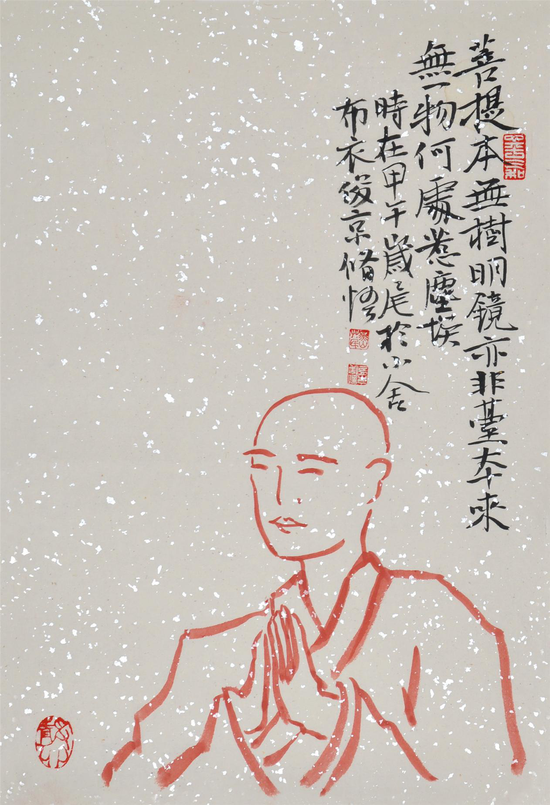 菩提本無樹明镜亦非臺本来
無一物何處惹塵埃
時在甲午歲尾於小舍
布衣京脩悟